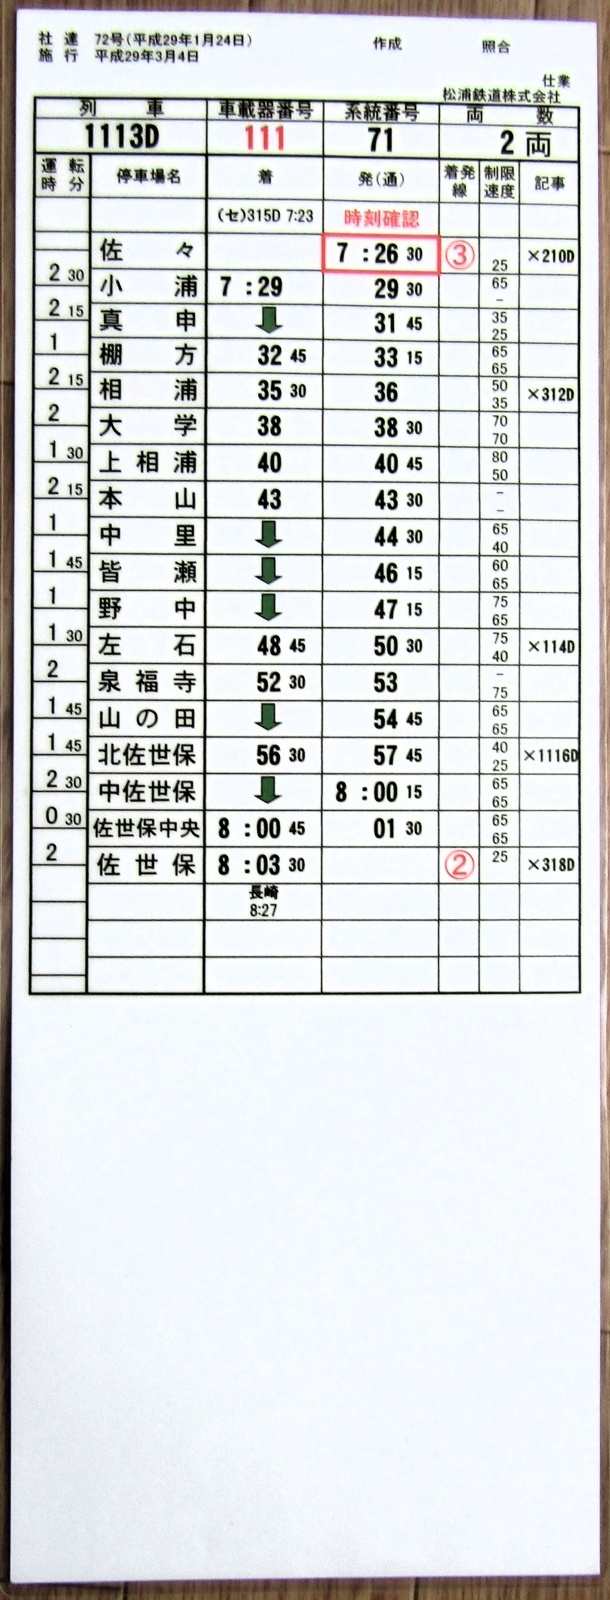 社達 72号(平成29年1月24日) 作成 照合
施行 平成29年3月4日
仕業
松浦鉄道株式会社
列車 車載器番号 系統番号 両数
1113D 111 71 2両
運転時分 停車場名 着 発(通) 着発線 制限速度 記事
(セ)315D 7:23 時刻確認
佐々 7:26 30 ③ 25 ×210D
2 30
小浦 7:29 29 30 65 -
2 15
真申 ⬇ 31 45 35 25
1
棚方 32 45 33 15 65 65
2 15
相浦 35 30 36 50 35 ×312D
2
大学 38 38 30 70 70
1 30
上相浦 40 40 45 80 50
2 15
本山 43 43 30 - -
1
中里 ⬇ 44 30 65 40
1 45
皆瀬 ⬇ 46 15 60 65
1
野中 ⬇ 47 15 75 65
1 30
左石 48 45 50 30 75 40 ×114D
2
泉福寺 52 30 53 - 75
1 45
山の田 ⬇ 54 45 65 65
1 45
北佐世保 56 30 57 45 40 25 ×1116D
2 30
中佐世保 ⬇ 8:00 15 65 65
0 30
佐世保中央 8:00 45 01 30 65 65
2
佐世保 8:03 30 ② 25 ×318D
長崎
8:27